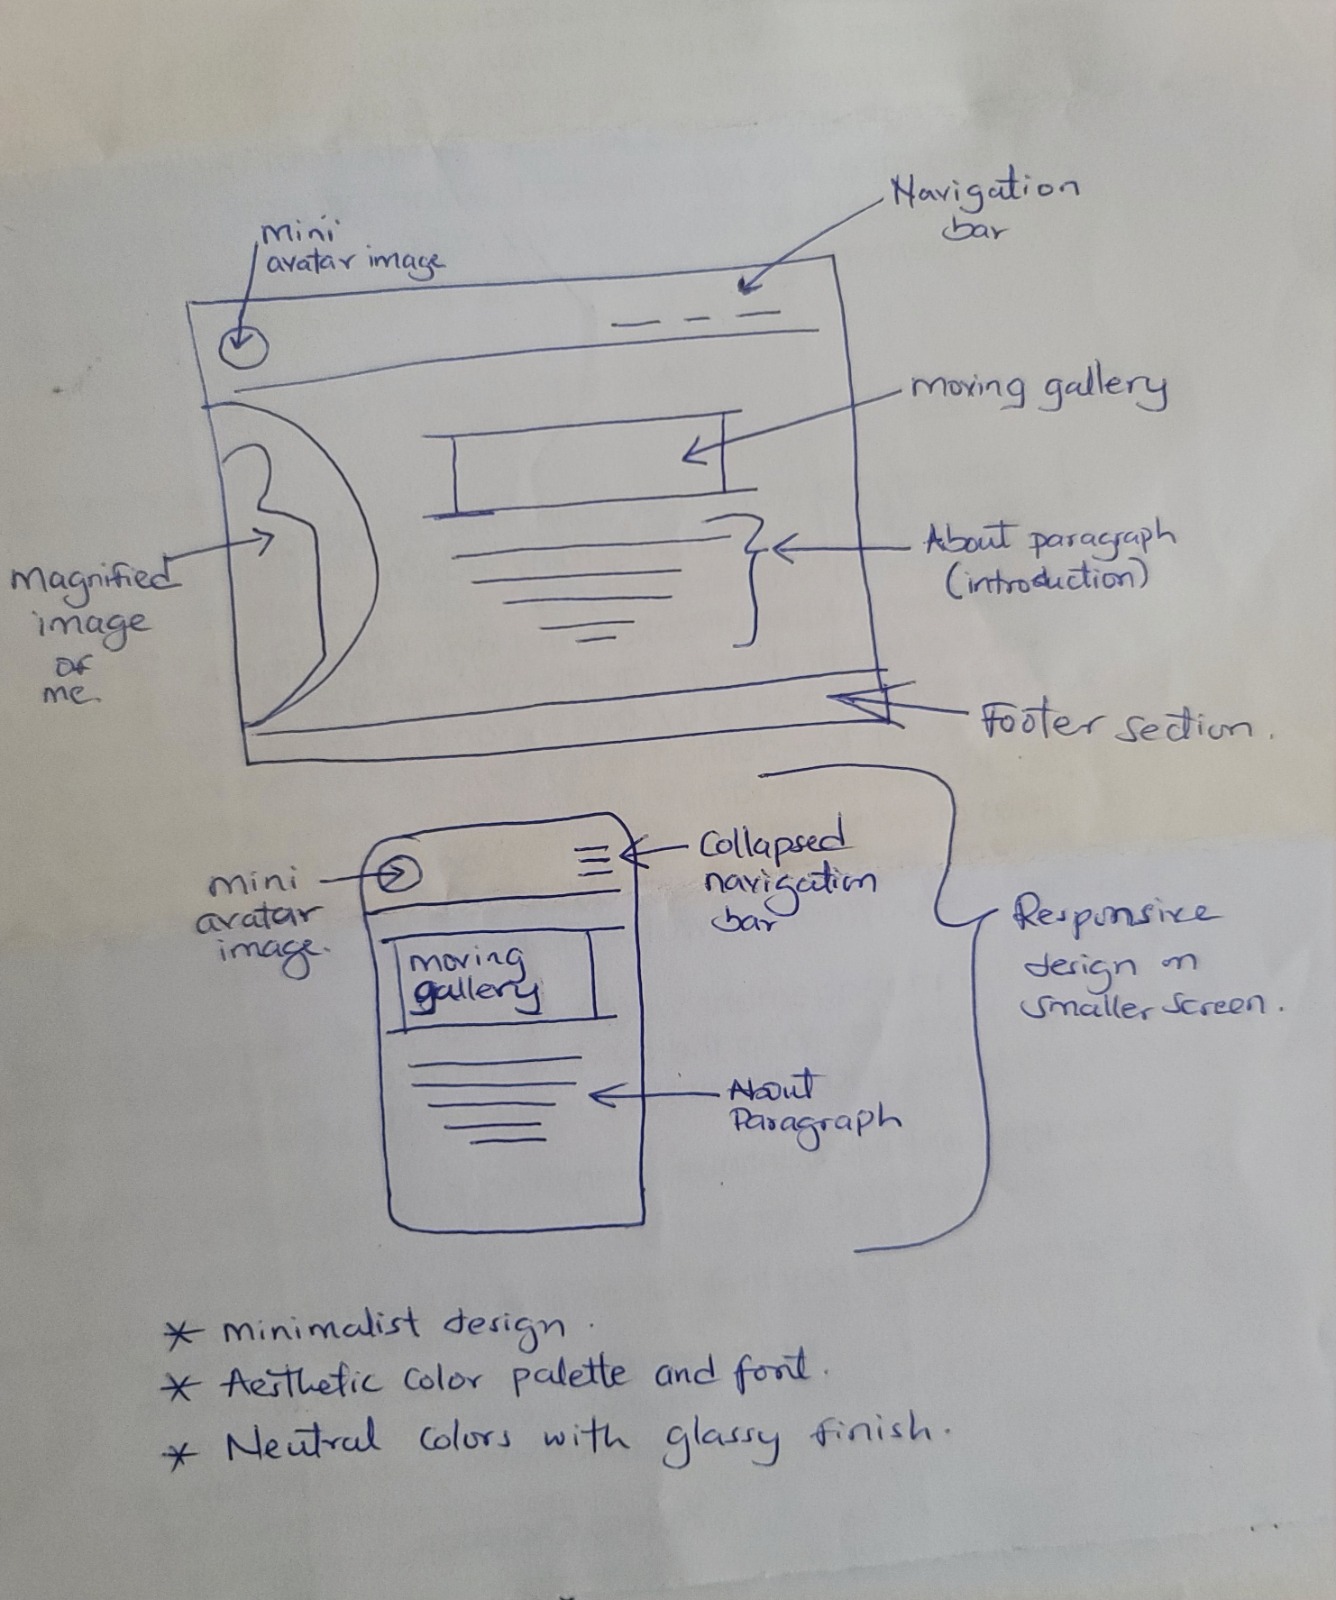 Navigation
bar
mini
avatar image
moving gallery
About paragraph
(introduction)
Magnified
image
of
me.
Footer section.
Collapsed
navigation
bar
mini
avatar
image.
moving
gallery
Responsive
design on
smaller screen.
About
Paragraph
* minimalist design.
* Aesthetic color palette and font.
* Neutral colors with glassy finish.